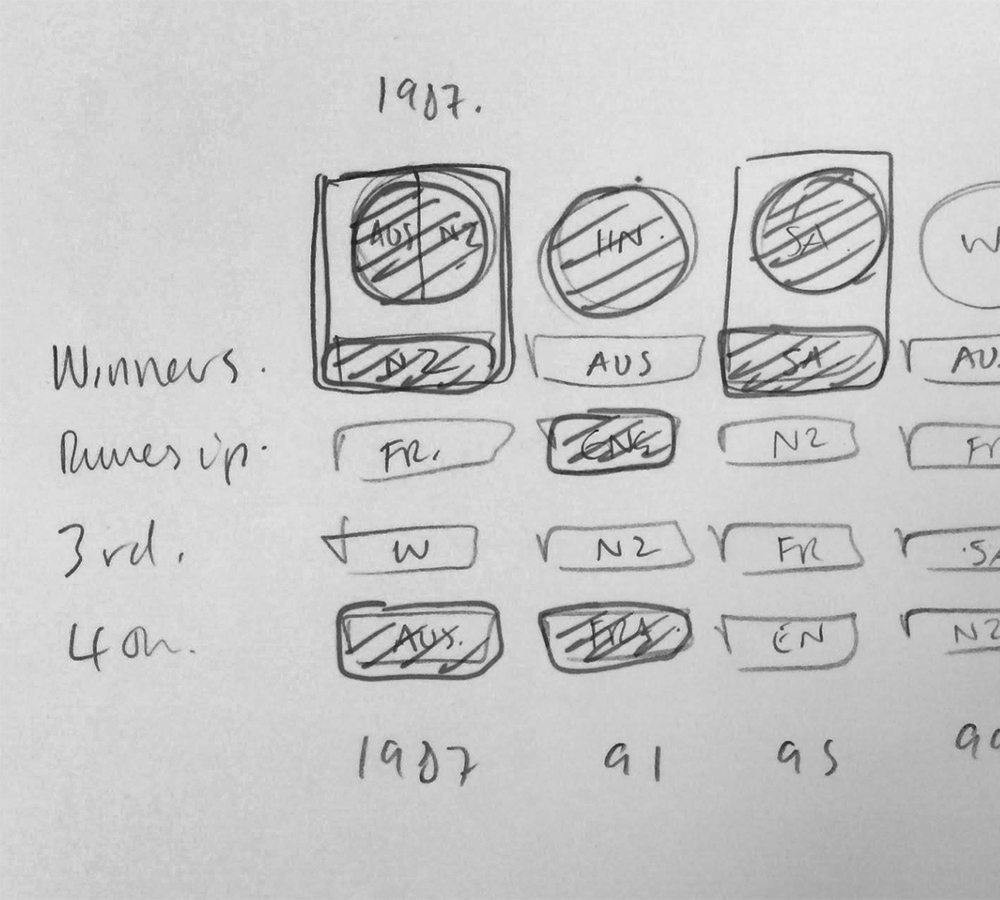 1987.
AUS NZ HN. SA W
Winners. NZ AUS SA AUS
Runers up. FR. ENG N2 FR
3rd. W N2 FR SA
4th. AUS. FRA. EN NZ
1987 91 95 99